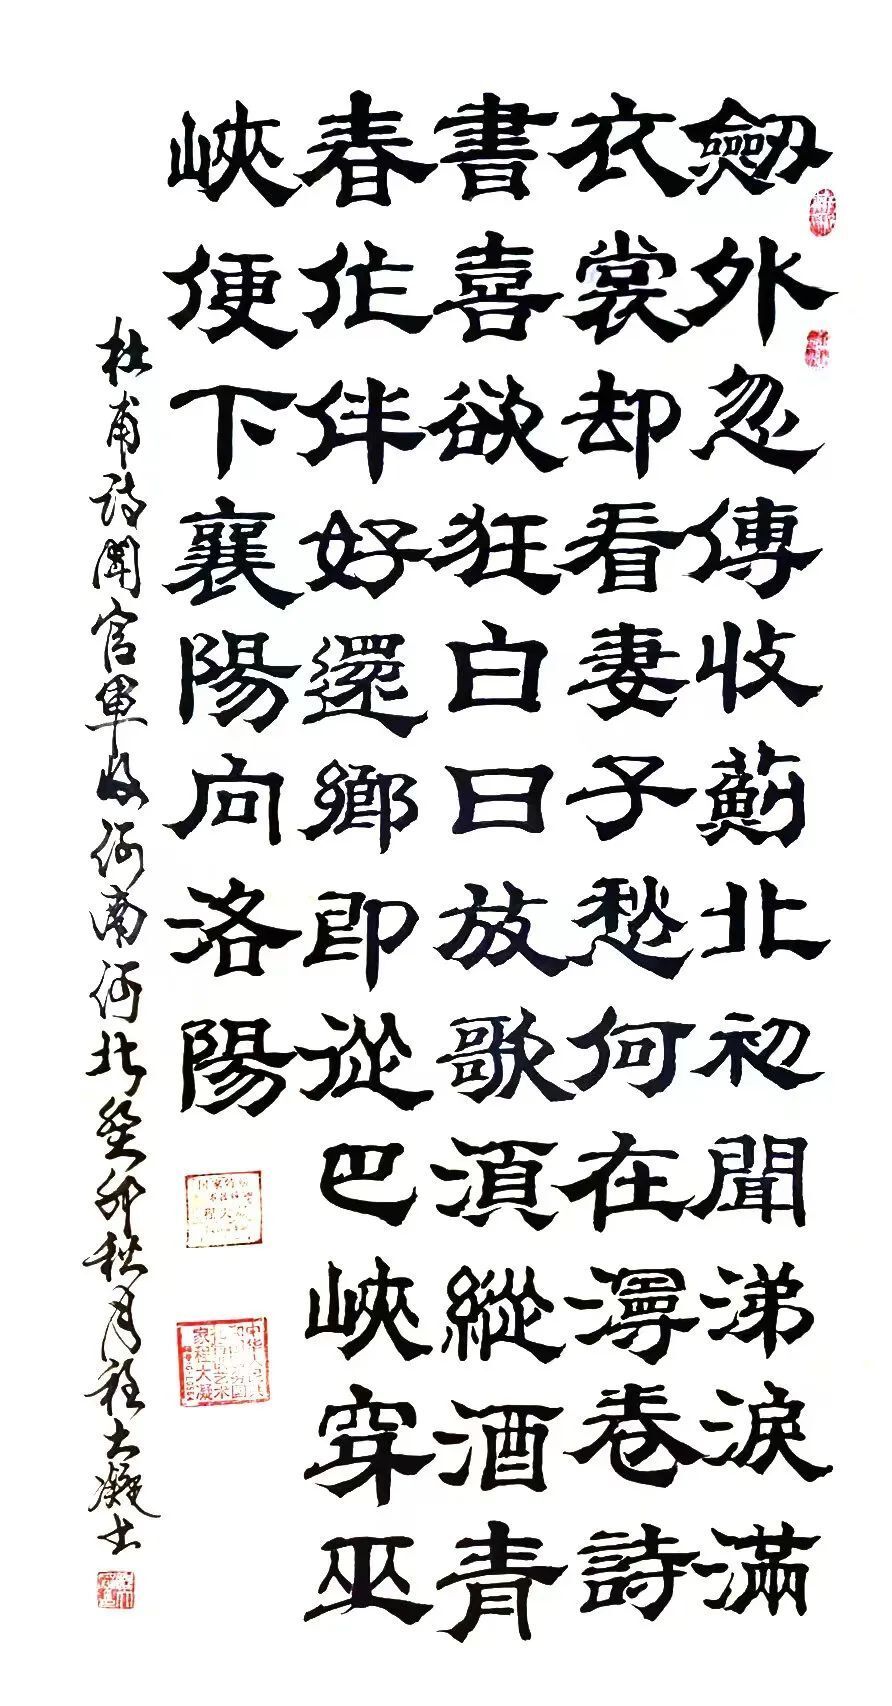 劔外忽傳收薊北初聞涕淚滿
衣裳却看妻子愁何在漫卷詩
書喜欲狂白日放歌須縱酒青
春作伴好還鄉即從巴峽穿巫
峽便下襄陽向洛陽
杜甫詩聞官軍收河南河北癸卯秋月程大凝书